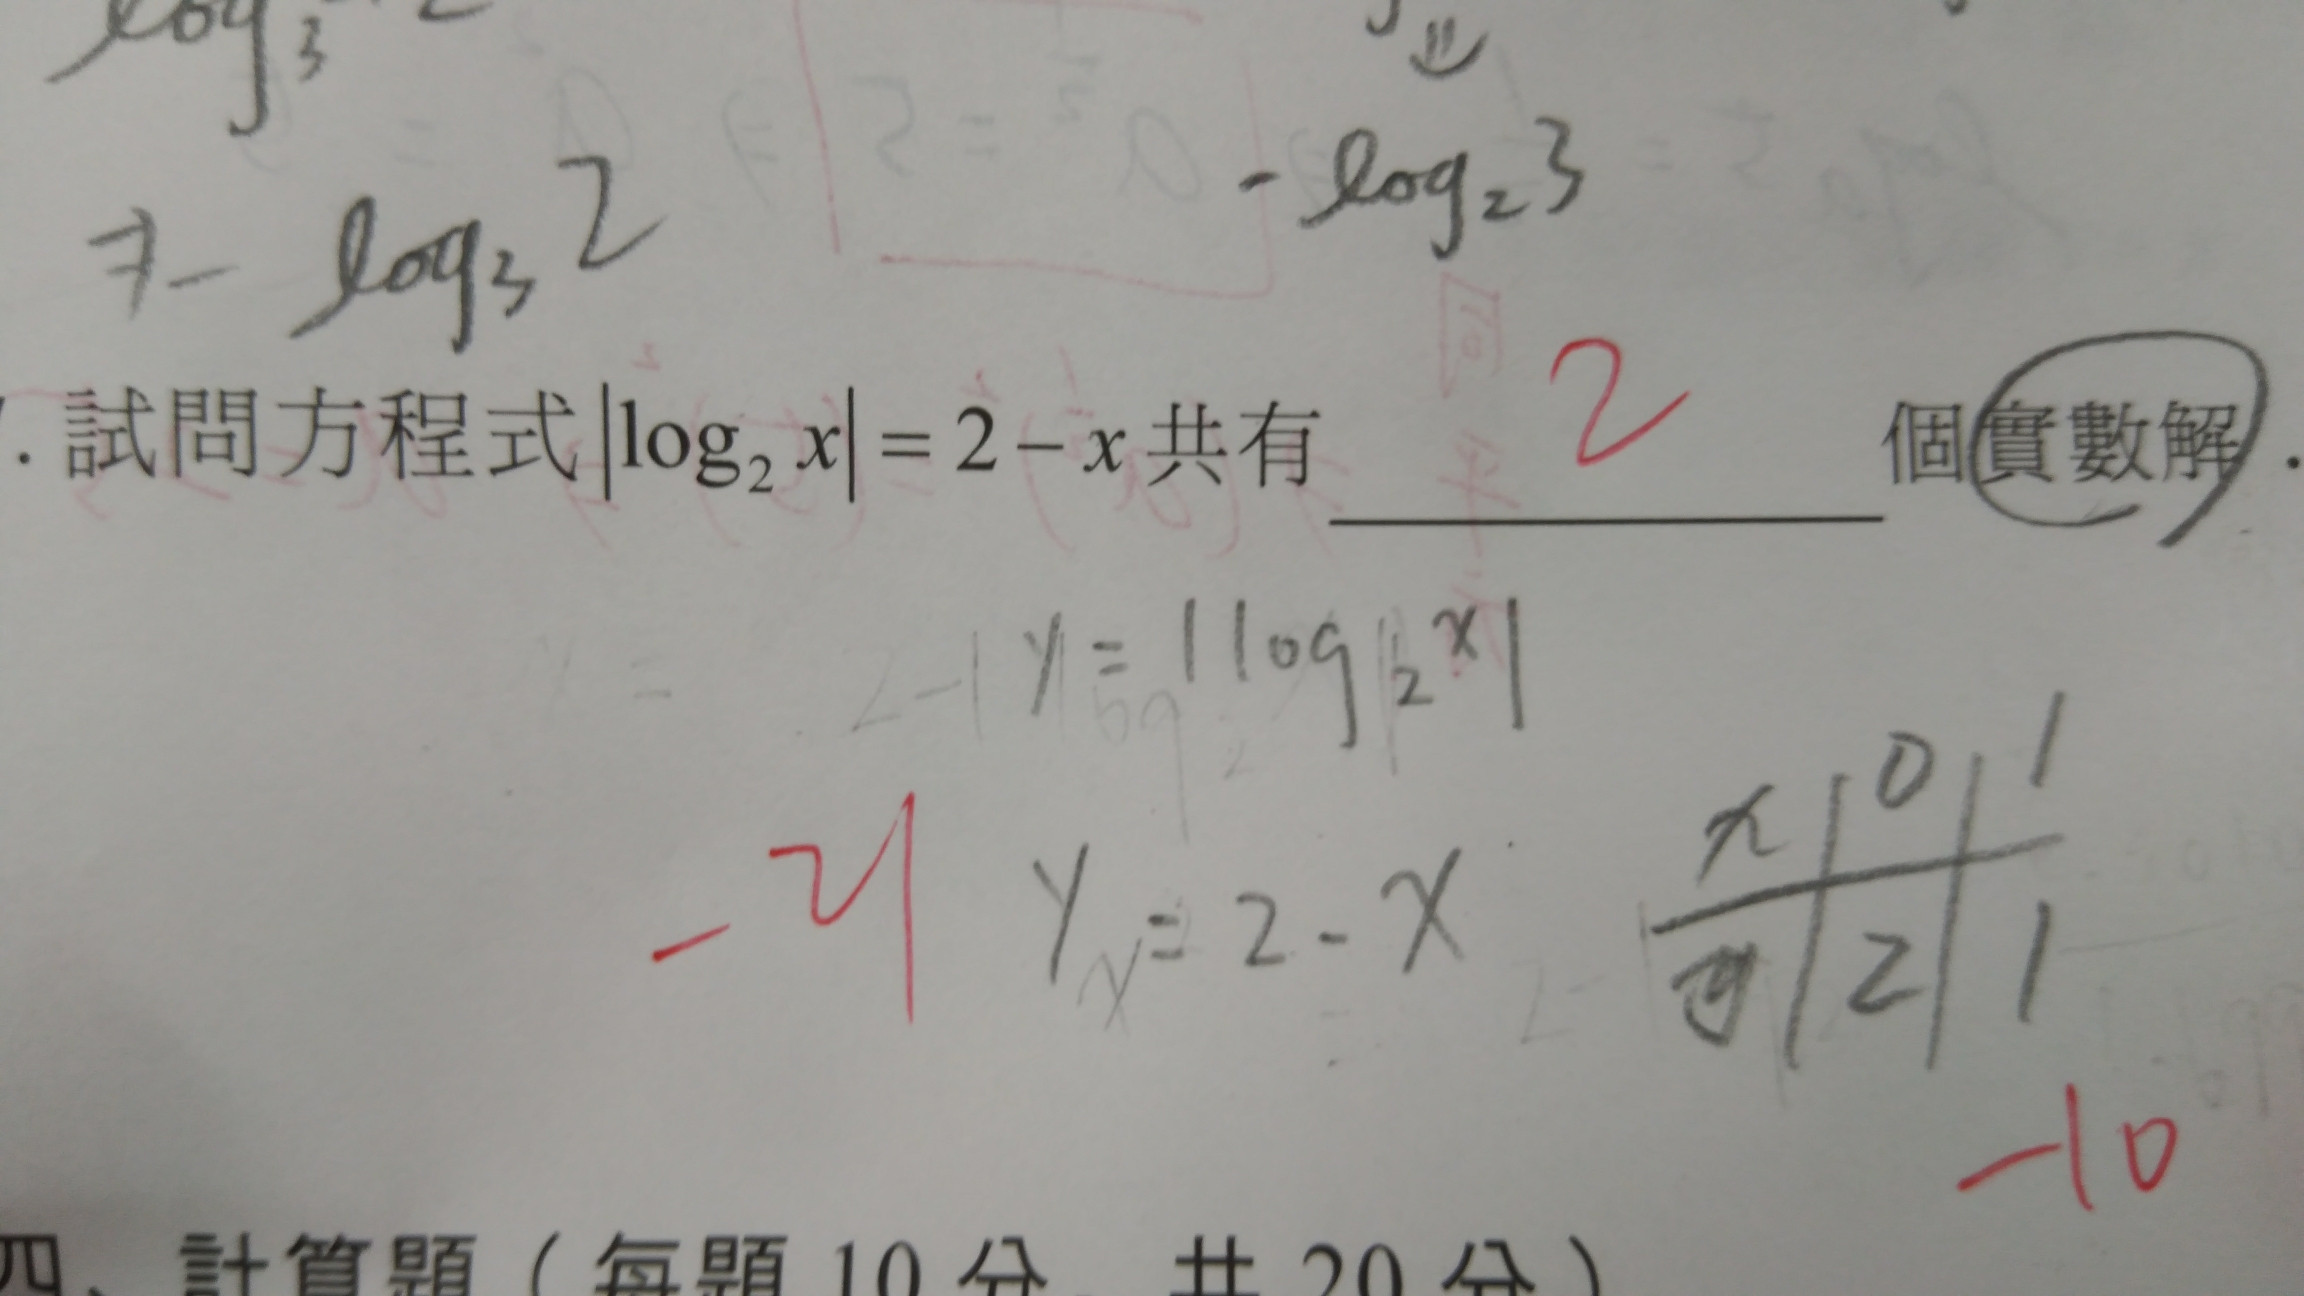 log₃
- log₂3
7 - log₃2
. 試問方程式|log₂ x| = 2 − x 共有 2 個實數解.
y = |log₂x|
x 0 1
y = 2 - x
y 2 1
-10
四、計算題（每題 10 分，共 20 分）